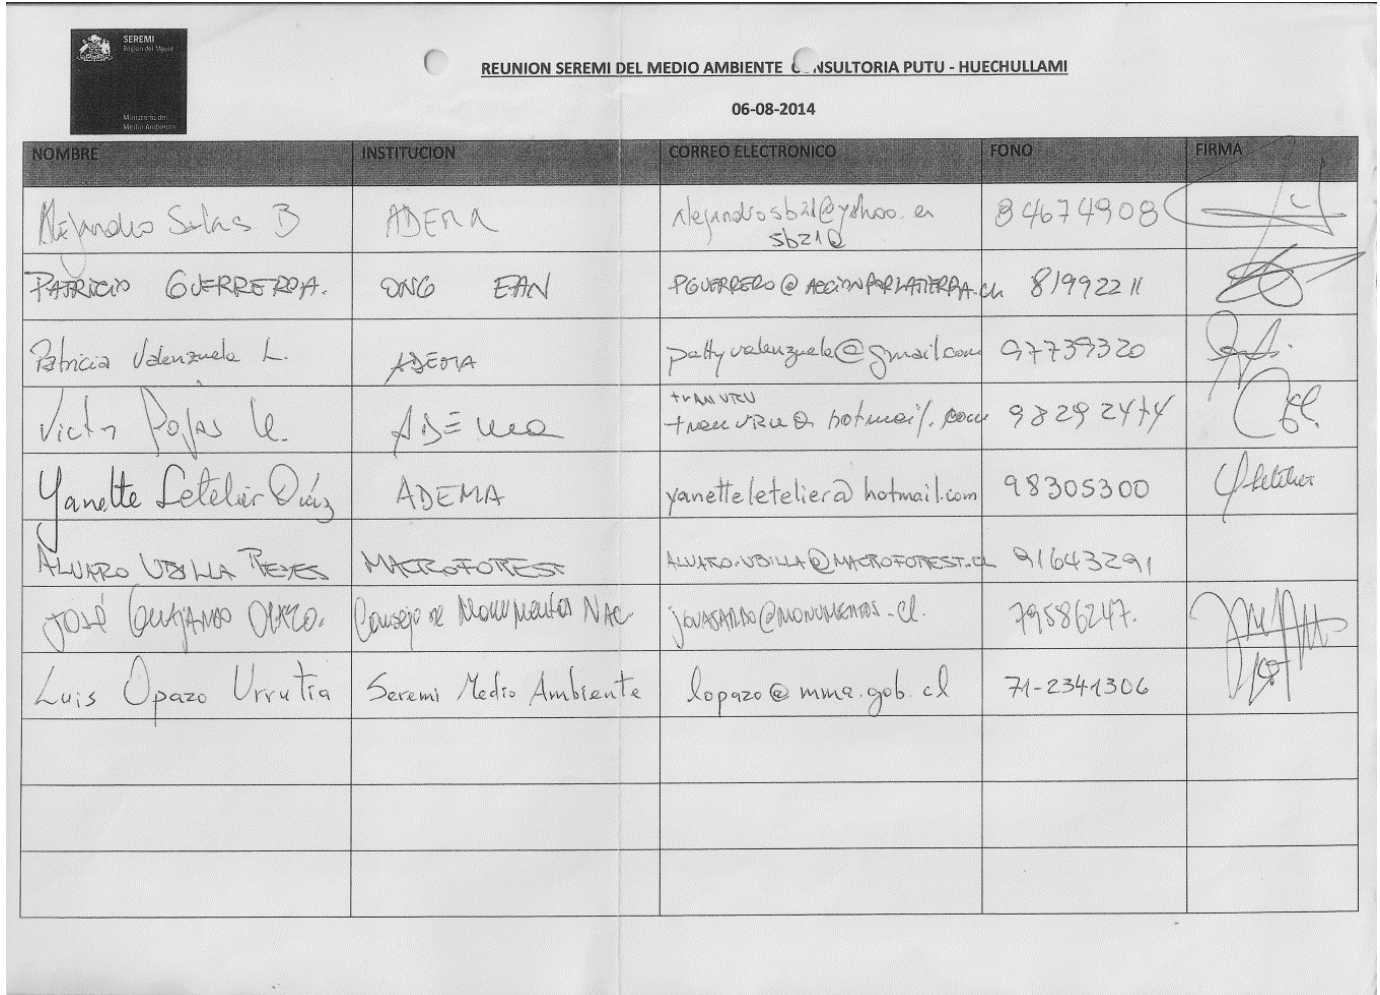 SEREMI
Región del Maule
Ministerio del
Medio Ambiente
REUNION SEREMI DEL MEDIO AMBIENTE NSULTORIA PUTU - HUECHULLAMI
06-08-2014
NOMBRE INSTITUCION CORREO ELECTRONICO FONO FIRMA
Alejandro Salas B ADEMA 84674908
sb21@
PATRICIO GUERRERO A. ONG EAN PGUERRERO@ACCIONPORLATIERRA.CL 81992211
Patricia Valenzuela L. ADEMA pattyvalenzuela@gmail.com 97739320
Victor Rojas V. ADEMA hotmail.com 98292474
Yanette Letelier Díaz ADEMA yanetteletelier@hotmail.com 98305300
ALVARO UBILLA REYES MACROFOREST ALVARO.UBILLA@MACROFOREST.CL 91643291
JOSÉ Consejo de Monumentos NAC. 79586247.
Luis Opazo Urrutia Seremi Medio Ambiente lopazo@mma.gob.cl 71-2341306